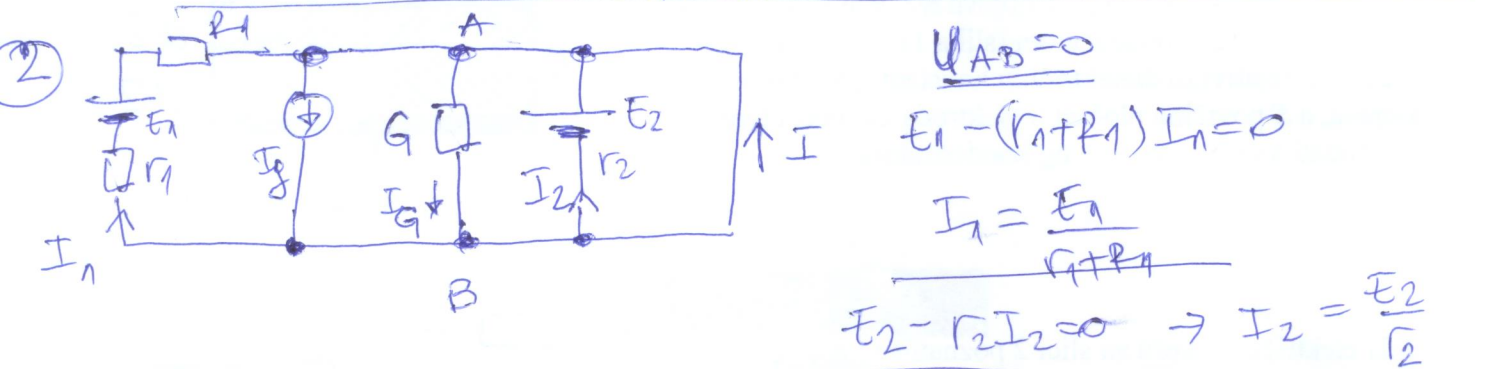 2
R1
A
E1
r1
I1
Ig
G
IG
E2
r2
I2
I
B
UAB=0
E1-(r1+R1)I1=0
I1=E1/r1+R1
E2-r2I2=0 → I2=E2/r2